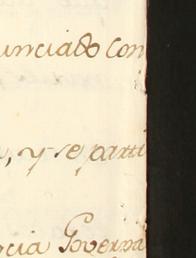 unciado con
, y se parti
cia Governa